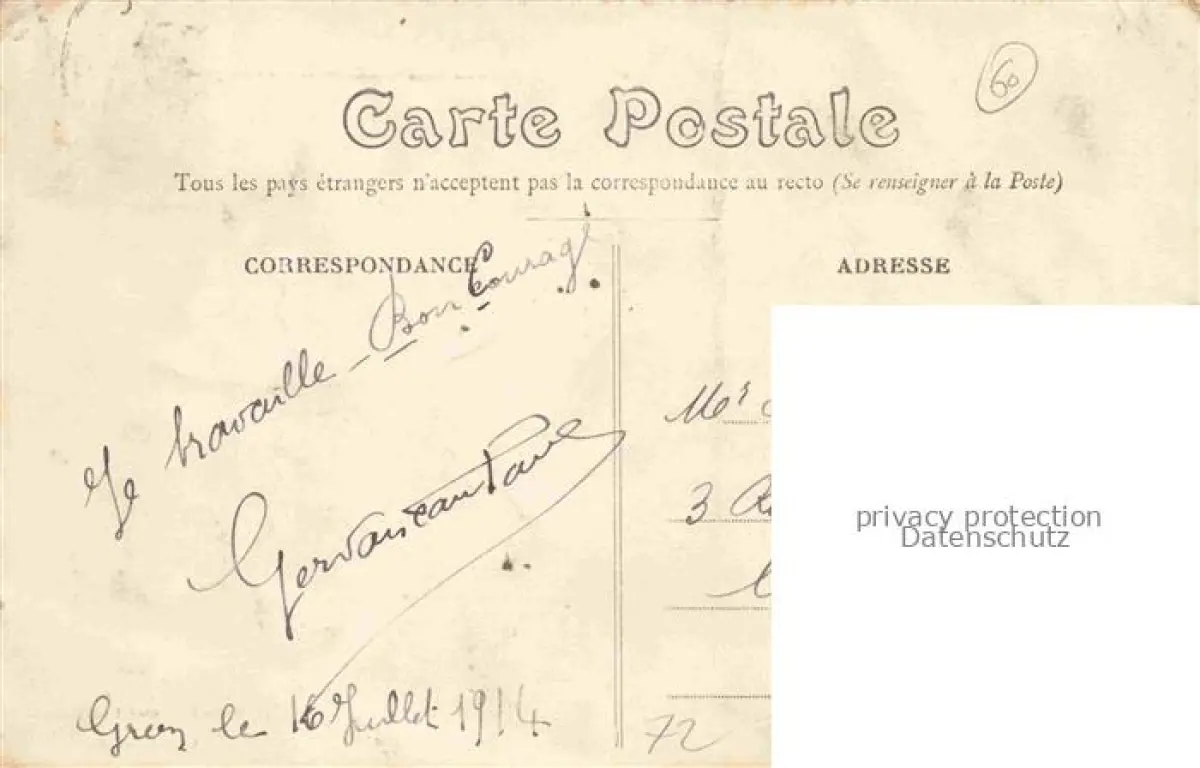 60
Carte Postale
Tous les pays étrangers n'acceptent pas la correspondance au recto (Se renseigner à la Poste)
CORRESPONDANCE
ADRESSE
Je travaille - Bon Courage
Mr
3
privacy protection
Datenschutz
le 16 Juillet 1914
72